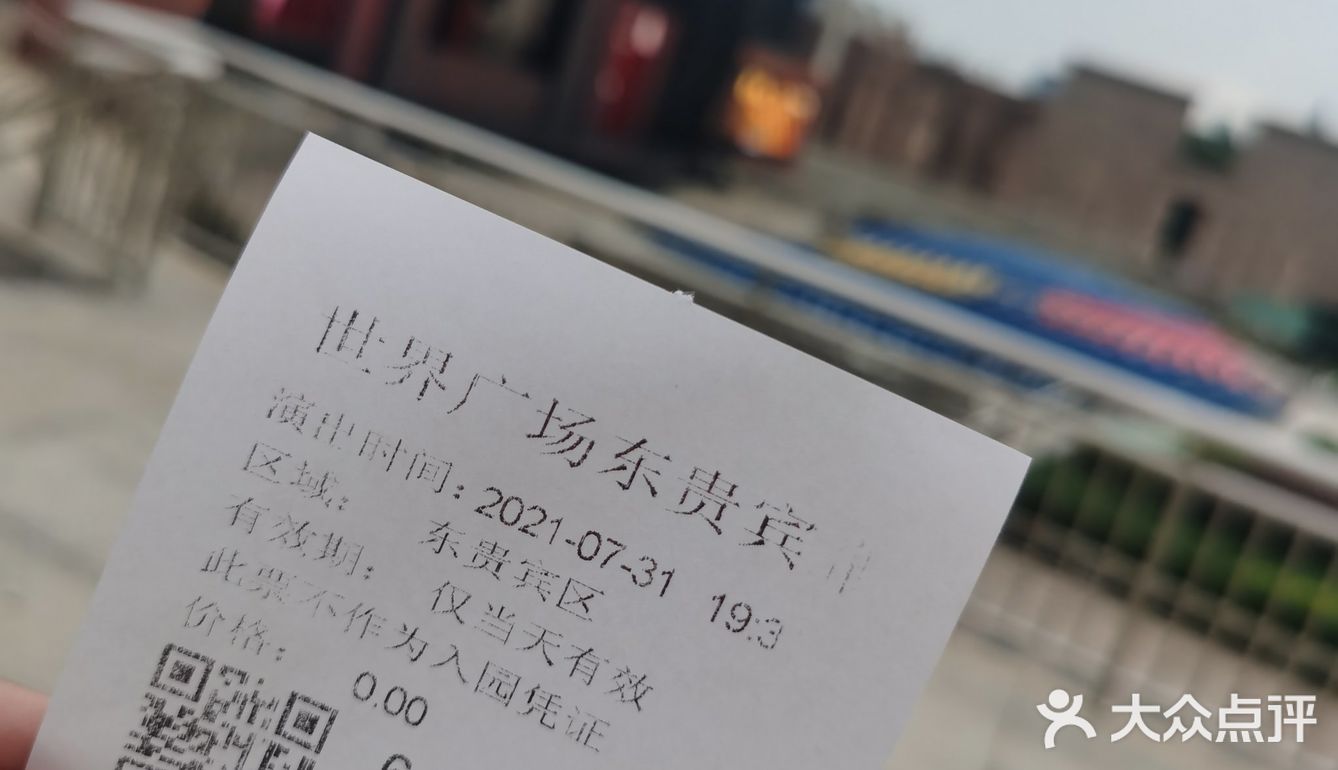 世界广场东贵宾
演出时间：2021-07-31 19:3
区域： 东贵宾区
有效期： 仅当天有效
此票不作为入园凭证
价格： 0.00
大众点评